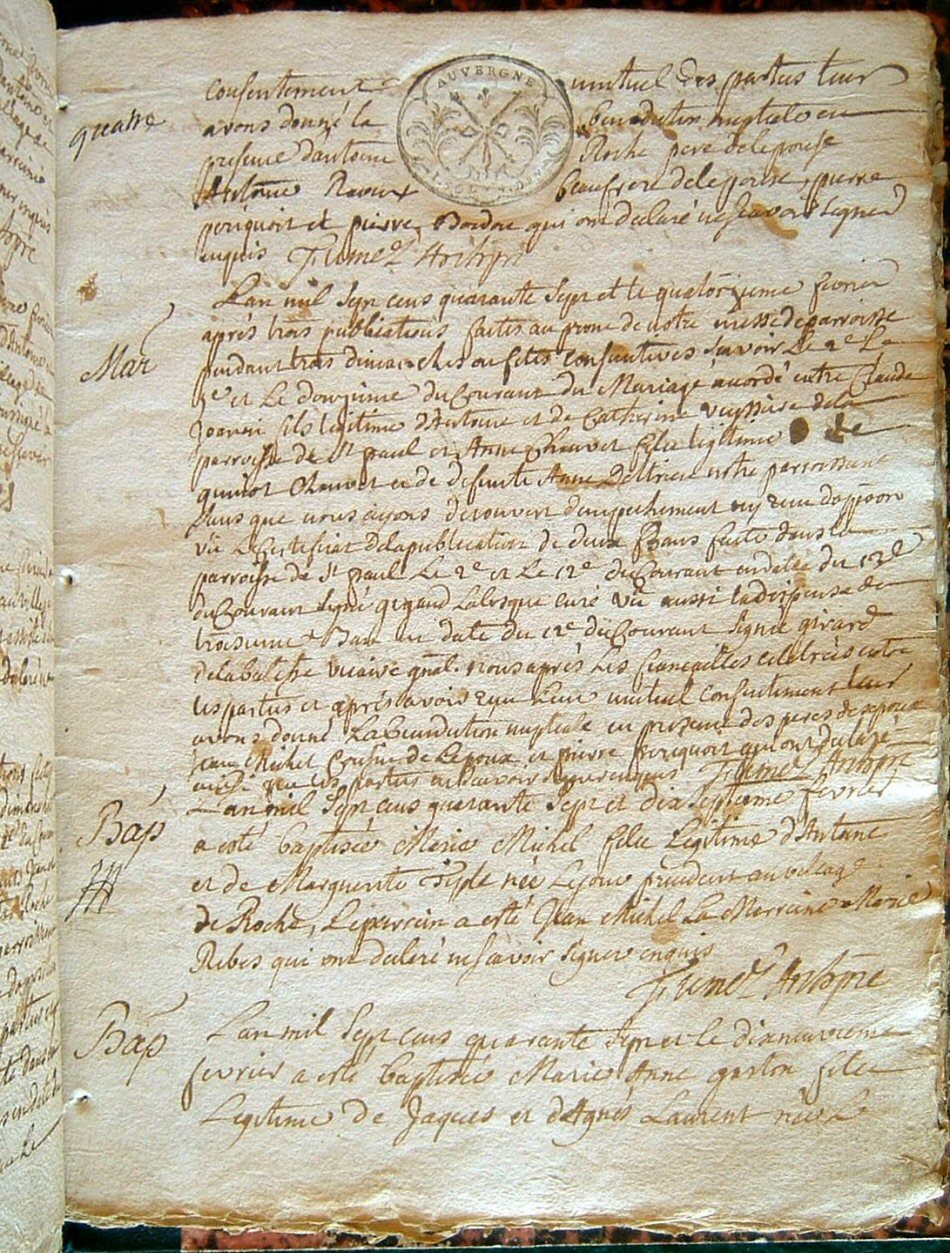 quatre
AUVERGNE
consentement mutuel des parties leur
avons donné la benediction nuptiale en
presence d'antoine Roche pere de lepouse
Antoine beaufrere de lepouse, pierre
periquoit et pierre qui ont declaré ne scavoir signer
enquis
Mar
Lan mil sept cens quarante sept et le quatorzieme fevrier
après trois publications faites au prone de notre messe de parroisse
pendant trois dimanches ou fêtes consecutives scavoir Le 2e Le
et Le douzieme du Courant du Mariage accordé entre Claude
fils legitime d'Antoine et de Catherine veyssiere de la
parroisse de st paul et Anne Chauvet fille legitime de
Chauvet et de defunte Anne notre parroissiene
sans que nous ayons decouvert d'empechement ny recu d'opposon
vû Le Certificat de la publication de deux Bans faite dans la
parroisse de st paul Le 2e et Le 12e du Courant en date du 13e
du Courant signé curé vû aussi la dispense du
troisieme Ban en date du 12e du Courant signée girard
de la vicaire gnal. nous après Les fiancailles celebrées entre
les parties et après avoir recu Leur mutuel consentiment leur
avons donné La benediction nuptiale en presence des peres des epoux
jean Michel de Lepoux et pierre periquoit qui ont declaré
que les parties ne scavoir signer enquis
Bap
Lan mil sept cens quarante sept et dix septieme fevrier
a esté baptisée Marie Michel fille Legitime d'Antoine
et de Marguerite née Le jour precedent au village
de Roche, Le parrein a esté Jean Michel La Marraine Marie
Ribes qui ont declaré ne scavoir signer enquis
Bap
Lan mil sept cens quarante sept et le dixneuvieme
fevrier a esté baptisée Marie Anne gaston fille
Legitime de Jaques et d'Agnés Laurent née Le